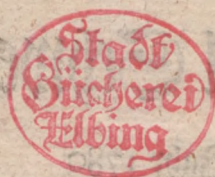 Stadt
Bücherei
Elbing